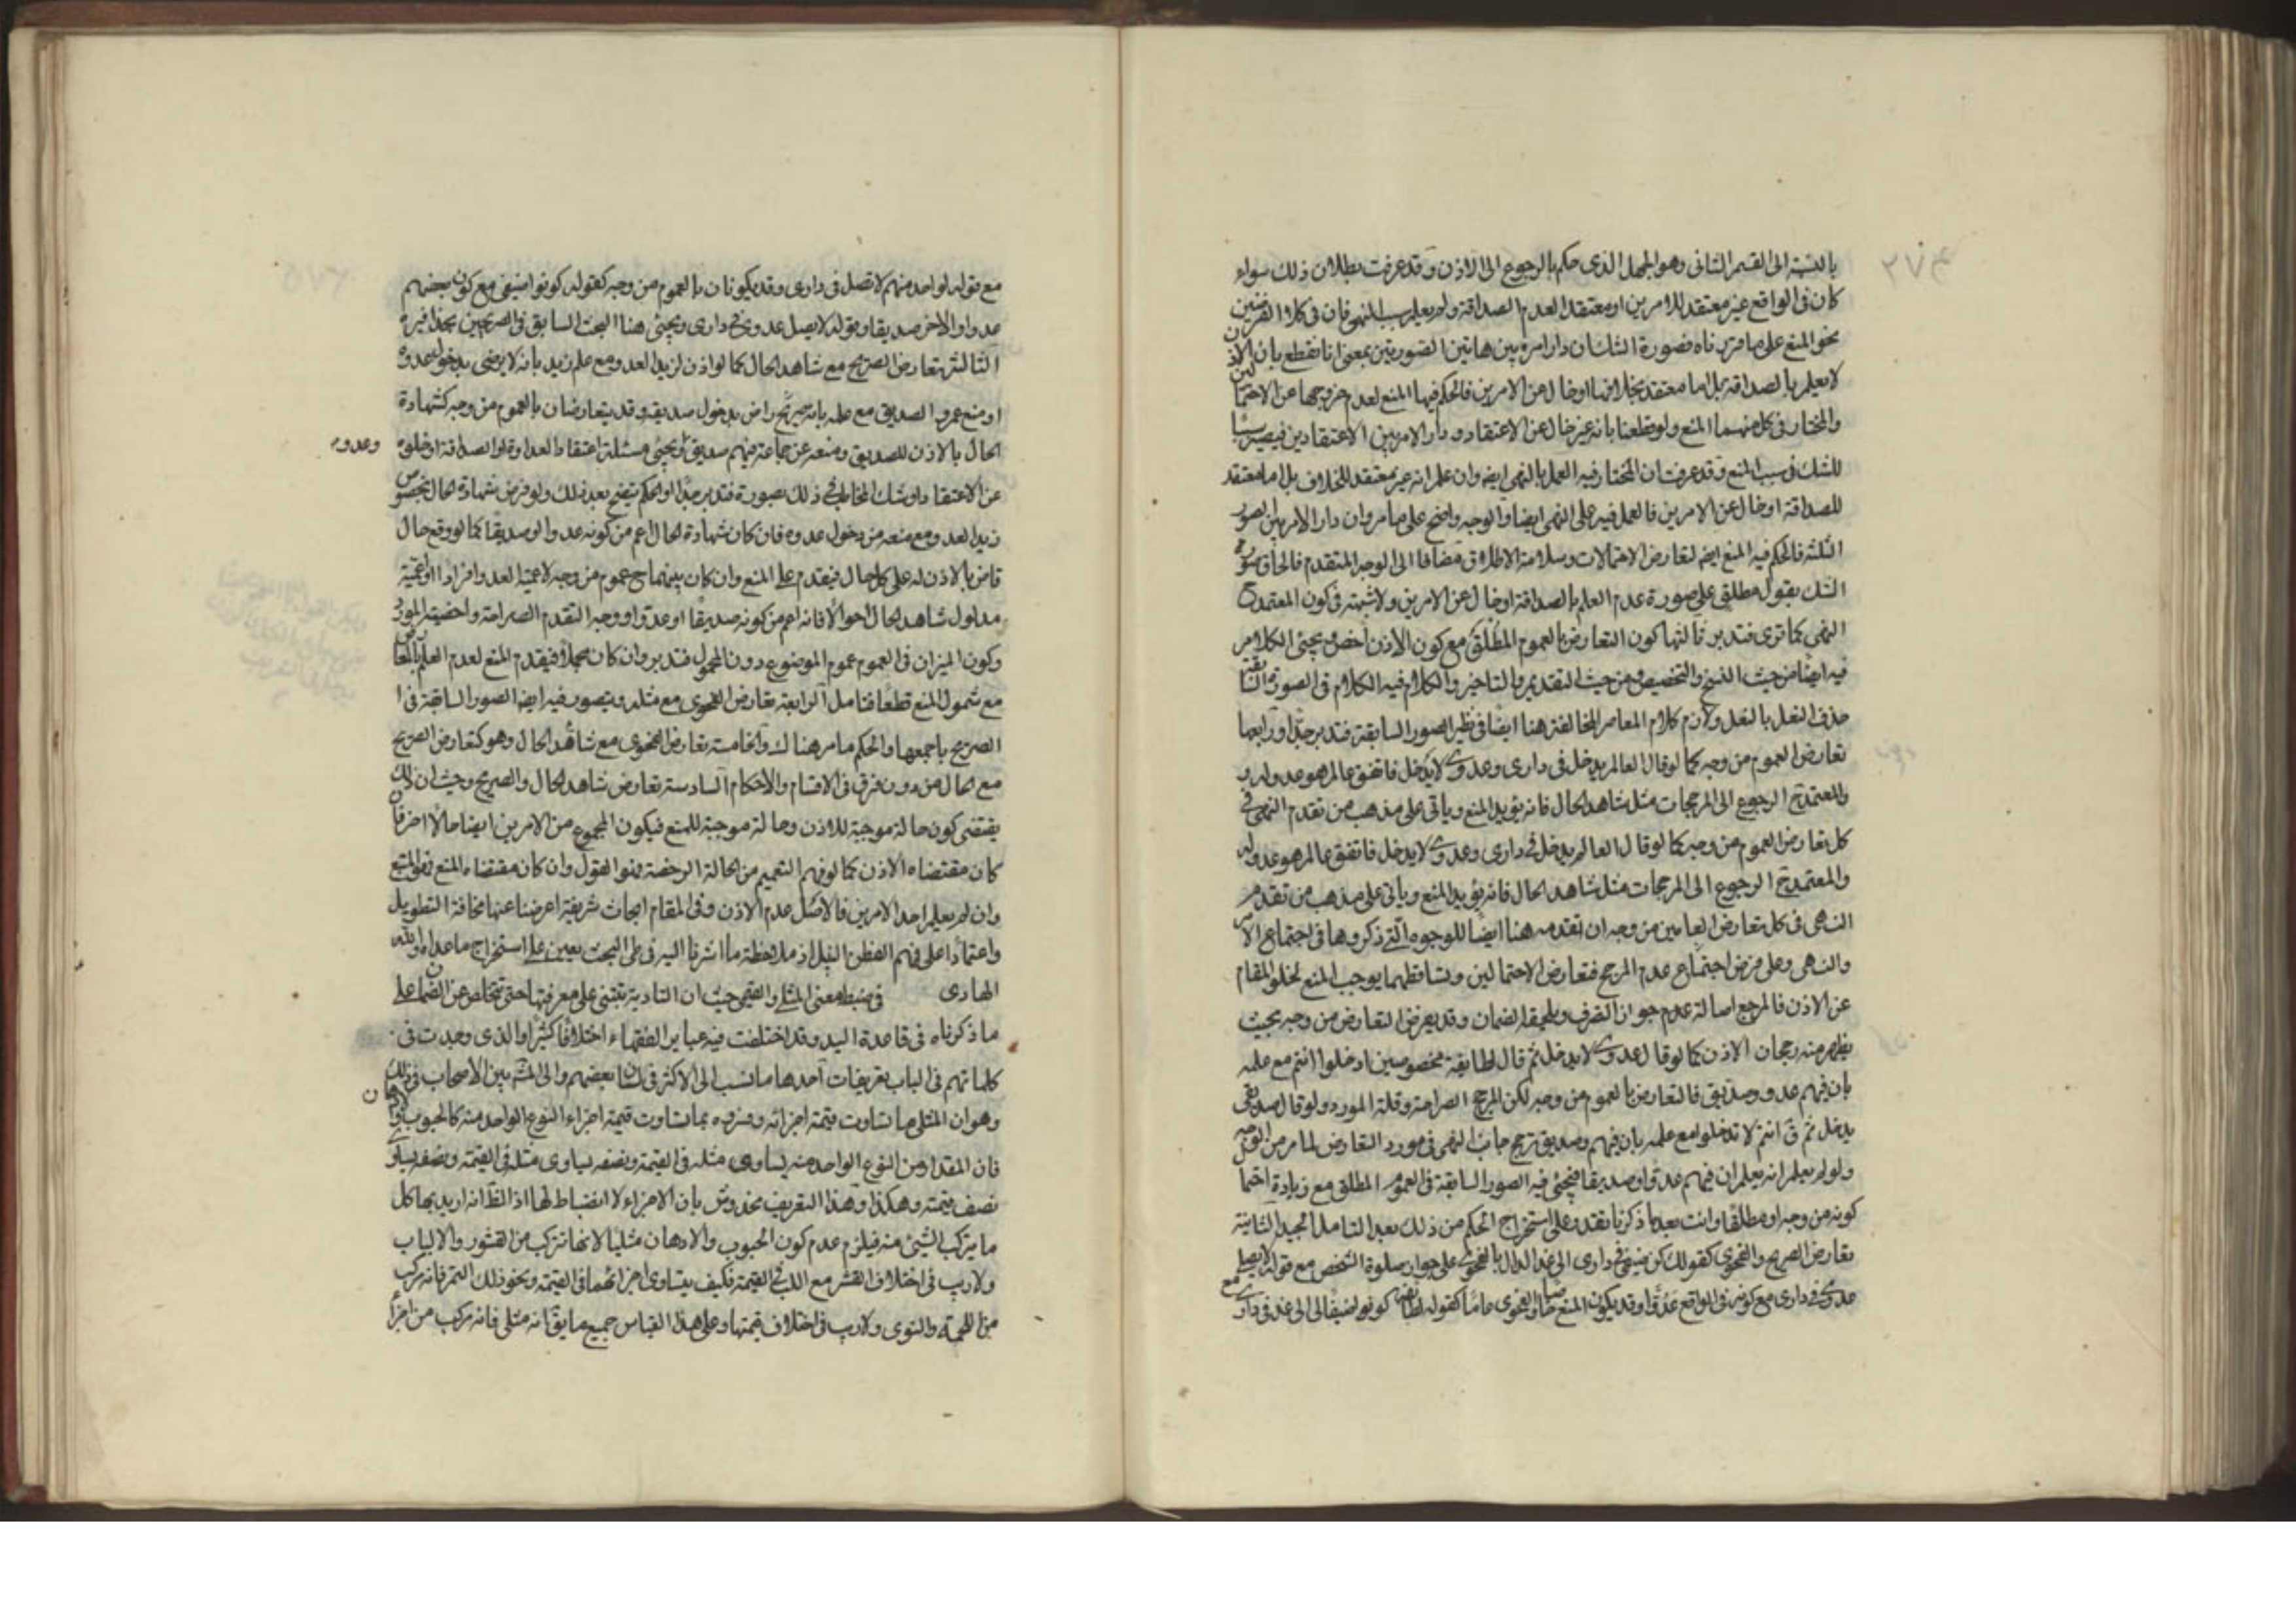 بالنسبة الى القسم الثانى وهو المجمل الذى حكم بالرجوع الى الاذن وقد عرفت بطلان ذلك سواء
كان فى الواقع غير معتقد للامرين او معتقدا لعدم الصداقة ولم يعلم سبب النهى فان فى كلا الفرضين
نحو المنع على ما قررناه فصورة الشك ان دار امره بين هاتين الصورتين بمعنى انا نقطع بان الاذن
لا يعلم بالصداقة بل اما معتقد بخلافها او خال عن الامرين فالحكم فيها المنع لعدم خروجها عن الاحتمالين
والمختار فى كل منهما المنع ولو قطعنا بانه غير خال عن الاعتقاد ودار الامر بين الاعتقادين فيصير سببا
للشك فى سبب المنع وقد عرفت ان المختار فيه العمل بالنهى ايضا وان علم انه غير معتقد للخلاف بل اما معتقد
للصداقة او خال عن الامرين فالعمل فيه على النهى ايضا والوجه واضح على ما مر وان دار الامر بين الصور
الثلثة فالحكم فيه المنع ايضا لتعارض الاحتمالات وسلامة الاطلاق مضافا الى الوجه المتقدم فالحاق صورة
الشك بقول مطلق على صورة عدم العلم بالصداقة او خال عن الامرين ولا شبهة فى كون المعتمد ح
النهى كما ترى فتدبر ثالثها كون التعارض بالعموم المطلق مع كون الاذن اخص ويجيئ الكلام
فيه ايضا من حيث النسخ والتخصيص ومن حيث التقديم والتاخير والكلام فيه الكلام فى الصورة السابقة
حذف النعل بالنعل ولازم كلام المعاصر المخالفة هنا ايضا فى نظير الصور السابقة فتدبر جدا ورابعها
تعارض العموم من وجه كما لو قال العالم يدخل فى دارى وعدوى لا يدخل فاتفق عالم هو عدو له و
والمعتمد ح الرجوع الى المرجحات مثل شاهد الحال فانه يؤيد المنع وياتى على مذهب من تقدم النهى فى
كل تعارض العموم من وجه كما لو قال العالم يدخل فى دارى وعدوى لا يدخل فاتفق عالم هو عدو له
والمعتمد ح الرجوع الى المرجحات مثل شاهد الحال فانه يؤيد المنع وياتى على مذهب من تقدم
النهى فى كل تعارض العامين من وجه ان تقدمه هنا ايضا للوجوه التى ذكروها فى اجتماع الامر
والنهى وعلى فرض اجتماع عدم المرجح فتعارض الاحتمالين وتساقطهما يوجب المنع لخلو المقام
عن الاذن فالمرجع اصالة عدم جواز التصرف ويلحقه الضمان وقد يعرض التعارض من وجه بحيث
يظهر منه رجحان الاذن كما لو قال عدوى لا يدخل ثم قال لطايفة مخصوصين ادخلوا انتم مع علمه
بان فيهم عدو وصديق فالتعارض بالعموم من وجه لكن المرجح الصراحة وقلة المورد ولو قال صديقى
يدخل ثم ق انتم لا تدخلوا مع علمه بان فيهم وصديق ترجح جانب النهى فى مورد التعارض لما مر من الوجه
ولو لم يعلم انه يعلم ان فيهم عدوا وصديقا فيجئ فيه الصور السابقة فى العموم المطلق مع زيادة احتمال
كونه من وجه او مطلقا وانت بعد ما ذكرنا تقدر على استخراج الحكم من ذلك بعد التامل الجيد الثانية
تعارض الصريح والفحوى كقولك كن ضيفى فى دارى الى غد الدال بالفحوى على جواز صلوة الشخص مع قوله لا يصل
عدوى فى دارى مع كونه فى الواقع عدوا وقد يكون المنع خاصا والفحوى عاما كقوله لطايفة كونوا ضيفا لى الى غد فى دارى
مع قوله لواحد منهم لا تصل فى دارى وقد يكونان بالعموم من وجه كقوله كونوا ضيفى مع كون بعضهم
عدوا والاخر صديقا وقوله لا يصل عدوى فى دارى ويجئ هنا البحث السابق فى الصريحين بحذافيره
الثالثة تعارض الصريح مع شاهد الحال كما لو اذن لزيد العدو مع علم زيد بانه لا يرضى بدخول عدوه
او منع عمرو الصديق مع علمه بانه ح راض بدخول صديقه وقد يتعارضان بالعموم من وجه كشهادة
الحال بالاذن للصديق ومنعه عن جماعة فيهم صديق ويجئ مسئلة اعتقاد العداوة او الصداقة او خلوه
وعدوه
عن الاعتقاد او شك المخاطب فى ذلك بصورة فتدبر جدا والحكم يتضح بعد ذلك ولو فرض شهادة الحال بخصوص
زيد العدو مع منعه من دخول عدوه فان كان شهادة الحال اعم من كونه عدوا او صديقا كما لو وقع حال
قاض بالاذن له على كل حال فيقدم على المنع وان كان بينهما ح عموم من وجه لاعمية العدو افرادا واعمية
مدلول شاهد الحال احوالا فانه اعم من كونه صديقا او عدوا ووجه التقدم الصراحة واخصية المورد
وكون الميزان فى العموم عموم الموضوع دون المحمول فتدبر وان كان مجملا فيقدم المنع لعدم العلم بالمعارض
مع شمول المنع قطعا فتامل الرابعة تعارض الفحوى مع مثله ويتصور فيه ايضا الصور السابقة فى ا
الصريح باجمعها والحكم ما مر هناك والخامسة تعارض الفحوى مع شاهد الحال وهو كتعارض الصريح
مع الحال من دون فرق فى الاقسام والاحكام السادسة تعارض شاهد الحال والصريح وحيث ان ذلك
يقتضى كون حالة موجبة للاذن وحالة موجبة للمنع فيكون المجموع من الامرين ايضا حالا اخر فان
كان مقتضاه الاذن كما لو فهم التعميم من الحالة الرخصة فهو المقول وان كان مقتضاه المنع فهو المتبع
وان لم يعلم احد الامرين فالاصل عدم الاذن وفى المقام ابحاث شريفة اعرضنا عنها مخافة التطويل
واعتمادا على فهم الفطن النبيل اذ ملاحظة ما اشرنا اليه فى طى البحث يعين على استخراج ما عداه والله
الهادى فى ضبط معنى المثلى والقيمى حيث ان التادية تبتنى على معرفتها حتى تتخلص عن الضمان على
ما ذكرناه فى قاعدة اليد وقد اختلفت فيه عباير الفقهاء اختلافا كثيرا والذى وجدت فى
كلماتهم فى الباب تعريفات احدها ما نسب الى الاكثر فى لسان بعضهم والى المشهور بين الاصحاب فى ذلك
وهو ان المثلى ما تساوت قيمة اجزائه وفسروه بما تساوت قيمة اجزاء النوع الواحد منه كالحبوب والادهان
فان المقدار من النوع الواحد منه يساوى مثله فى القيمة ونصفه يساوى مثله فى القيمة ونصفه يساوى
نصف قيمته وهكذا وهذا التعريف مخدوش بان الاجزاء لا انضباط لها اذ الظ انه اريد بها كل
ما يتركب الشيئ منه فيلزم عدم كون الحبوب والادهان مثليا لانها تتركب من القشور والالباب
ولا ريب فى اختلاف القشر مع اللب فى القيمة فكيف يتساوى اجزائهما فى القيمة ونحو ذلك التمر فانه مركب
من اللحمة والنوى ولا ريب فى اختلاف قيمتها وعلى هذا القياس جميع ما يق انه مثلى فانه مركب من اجزاء